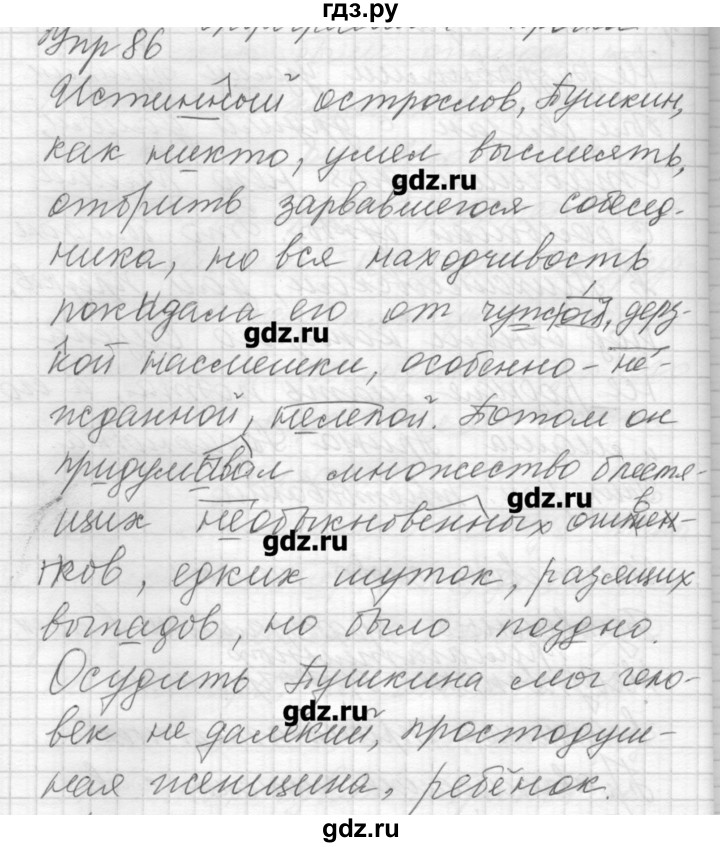 гдз.ру
Упр 86
Истинный острослов, Пушкин,
как никто, умел высмеять,
gdz.ru
отбрить зарвавшегося собесед-
ника, но вся находчивость
покидала его от чужой, дерз-
gdz.ru
кой насмешки, особенно - не-
жданной, нелепой. Потом он
придумывал множество блестя-
gdz.ru
щих необыкновенных
gdz.ru
ков, едких шуток, разящих
выпадов, но было поздно.
Осудить Пушкина мог чело-
gdz.ru
век не далекий, простодуш-
ная женщина, ребёнок.
gdz.ru